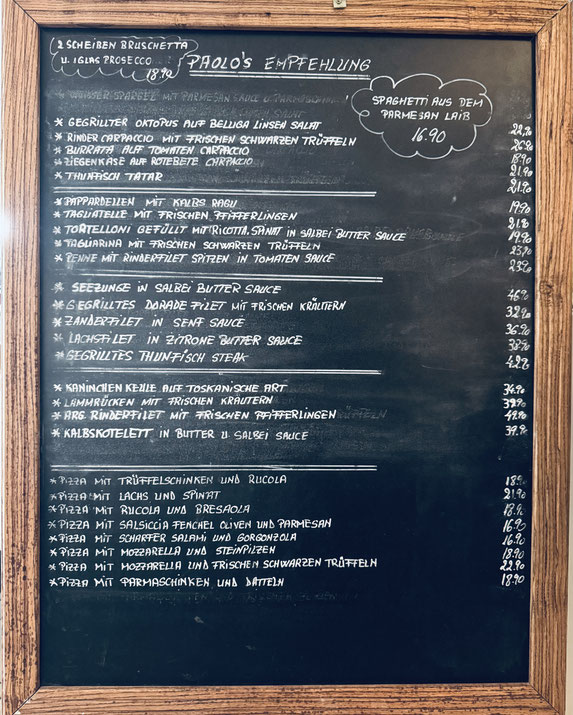 2 SCHEIBEN BRUSCHETTA
U. 1GLAS PROSECCO
18.90
PAOLO'S EMPFEHLUNG
SPAGHETTI AUS DEM
PARMESAN LAIB
16.90
* GEGRILLTER OKTOPUS AUF BELUGA LINSEN SALAT
* RINDER CARPACCIO MIT FRISCHEN SCHWARZEN TRÜFFELN
* BURRATA AUF TOMATEN CARPACCIO 18.90
* ZIEGENKÄSE AUF ROTEBETE CARPACCIO 21.90
* THUNFISCH TATAR 21.90
* PAPPARDELLEN MIT KALBS RAGU 19.90
* TAGLIATELLE MIT FRISCHEN PFIFFERLINGEN
* TORTELLONI GEFÜLLT MIT RICOTTA, SPINAT IN SALBEI BUTTER SAUCE 19.90
* TAGLIARINA MIT FRISCHEN SCHWARZEN TRÜFFELN 23.90
* PENNE MIT RINDERFILET SPITZEN IN TOMATEN SAUCE
* SEEZUNGE IN SALBEI BUTTER SAUCE
* GEGRILLTES DORADE FILET MIT FRISCHEN KRÄUTERN
* ZANDERFILET IN SENF SAUCE 36.90
* LACHSFILET IN ZITRONE BUTTER SAUCE
* GEGRILLTES THUNFISCH STEAK
* KANINCHEN KEULE AUF TOSKANISCHE ART 34.90
* LAMMRÜCKEN MIT FRISCHEN KRÄUTERN
* ARG. RINDERFILET MIT FRISCHEN PFIFFERLINGEN
* KALBSKOTELETT IN BUTTER U. SALBEI SAUCE 39.90
* PIZZA MIT TRÜFFELSCHINKEN UND RUCOLA 18.90
* PIZZA MIT LACHS UND SPINAT 21.90
* PIZZA MIT RUCOLA UND BRESAOLA 18.90
* PIZZA MIT SALSICCIA FENCHEL OLIVEN UND PARMESAN 16.90
* PIZZA MIT SCHARFER SALAMI UND GORGONZOLA 16.90
* PIZZA MIT MOZZARELLA UND STEINPILZEN 18.90
* PIZZA MIT MOZZARELLA UND FRISCHEN SCHWARZEN TRÜFFELN 22.90
* PIZZA MIT PARMASCHINKEN UND DATTELN 18.90